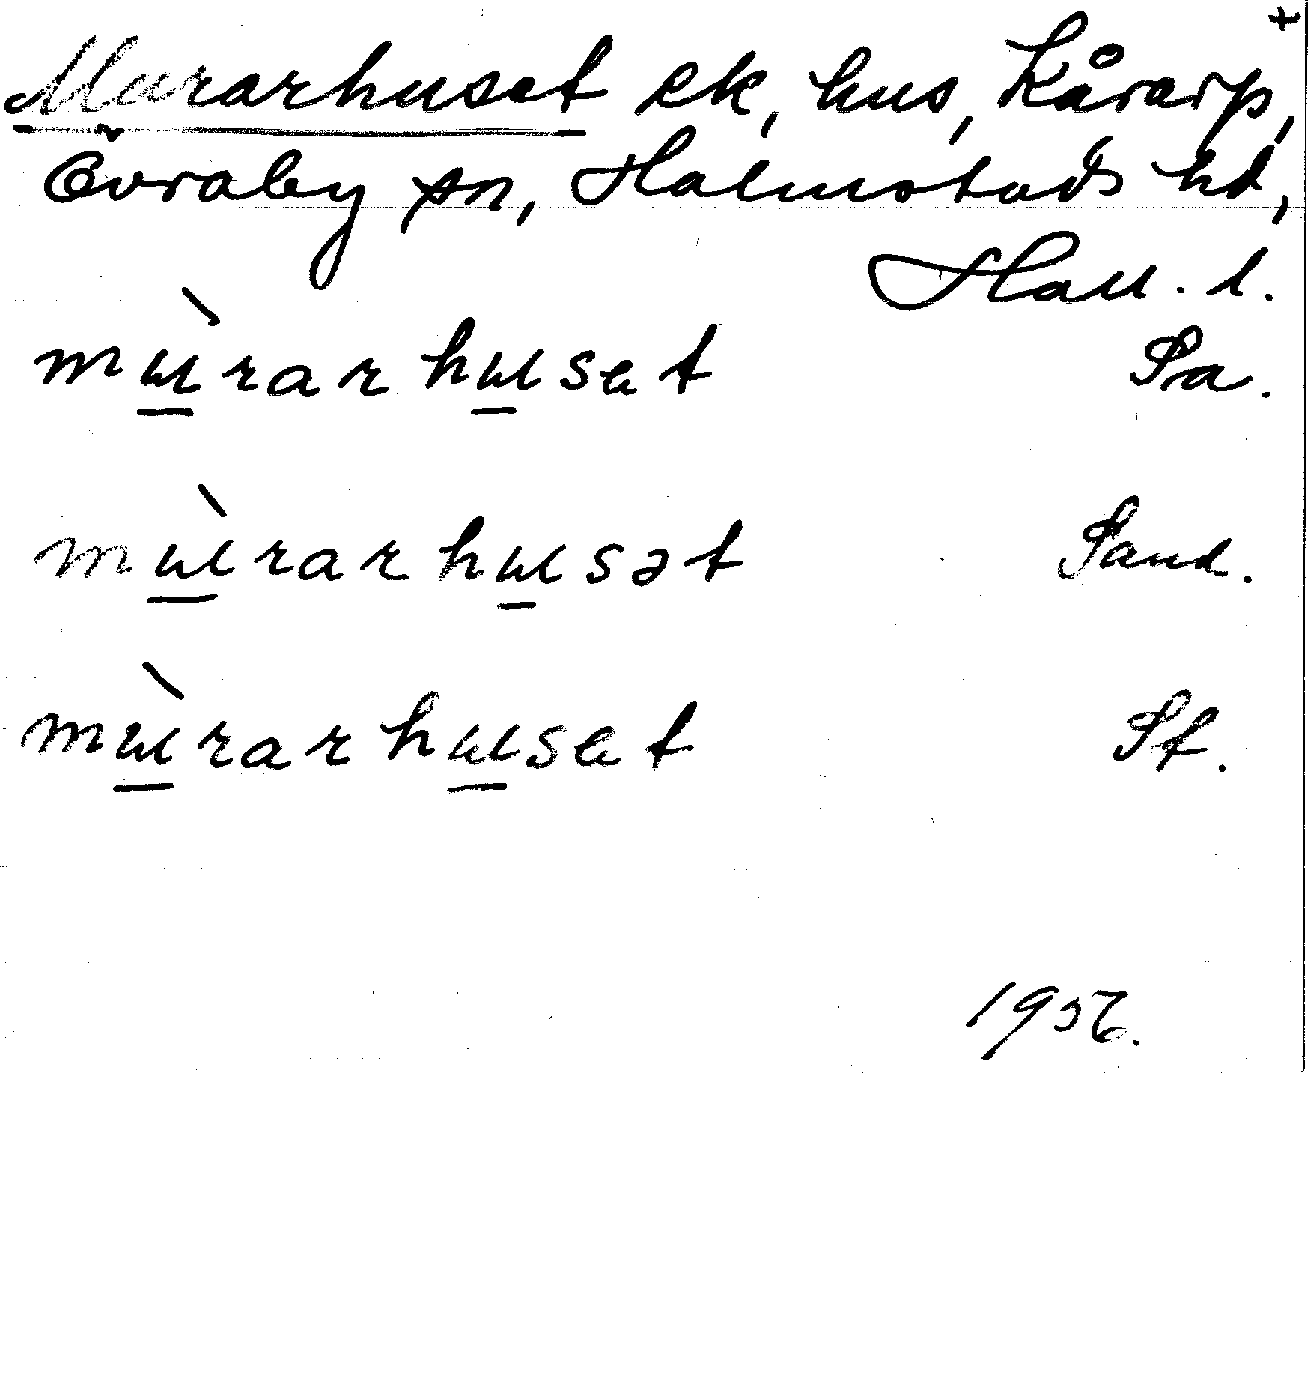 +
Murarhuset ek, hus, Kårarp,
Övraby sn, Halmstads hd,
Hall. l.
mù̲rarhu̲set Sa.
mù̲rarhu̲sət Sand.
mù̲rarhu̲set Sf.
1956.